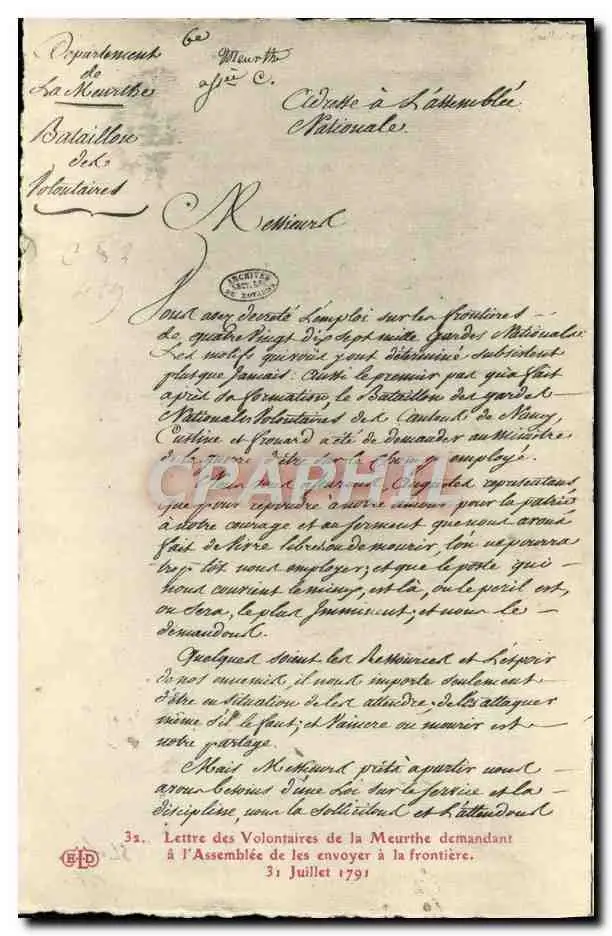 Département
de
La Meurthe
Bataillon
des
Volontaires
6e
Meurthe
assée C.
Adresse à L'assemblée
Nationale.
Messieurs
ARCHIVES
DU ROYAUME
Vous avez decreté L'emploi sur les frontieres
de quatre Vingt dix sept mille gardes Nationales.
Les motifs qui vous y ont déterminé subsistent
plus que Jamais: aussi le premier pas qu'a fait
après sa formation, le Bataillon des gardes
Nationales Volontaires des Cantons de Nancy,
Custine et frouard a été de demander au Ministre
de la guerre d'être sur le Champ employé.
Nous vous assurons, Augustes representans
que pour repondre à notre amour pour la patrie
à notre courage et au serment que nous avons
fait de Vivre libres ou de mourir, l'on ne pourra
trop tôt nous employer; et que le poste qui
nous convient le mieux, est là, ou le peril est,
ou sera, le plus Imminent; et nous le
demandons.
Quelques soient les Ressources et L'espoir
de nos ennemis, il nous importe seulement
d'être en situation de les attendre, de les attaquer
même s'il le faut; et Vaincre ou mourir est
notre partage.
Mais Messieurs prêts à partir nous
avons besoins d'une Loi sur le service et la
discipline, nous la sollicitons et L'attendons
CPAPHIL
32. Lettre des Volontaires de la Meurthe demandant
à l'Assemblée de les envoyer à la frontière.
31 Juillet 1791
ELD